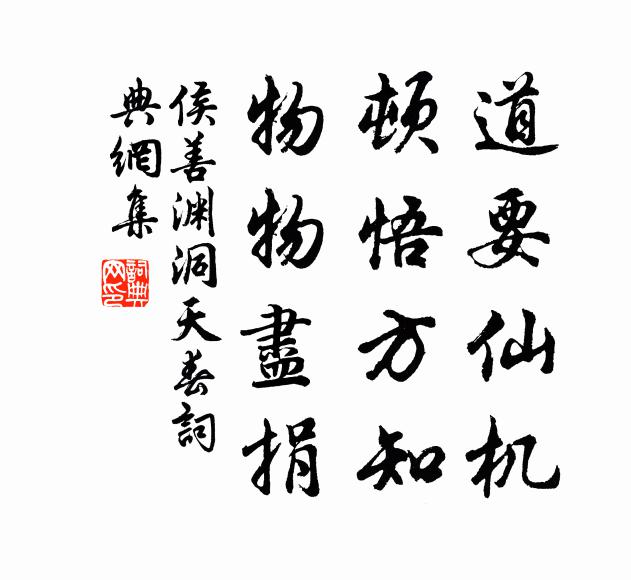 道要仙机
顿悟方知
物物盡捐
侯善渊洞天春詞
典網集
詞典网印